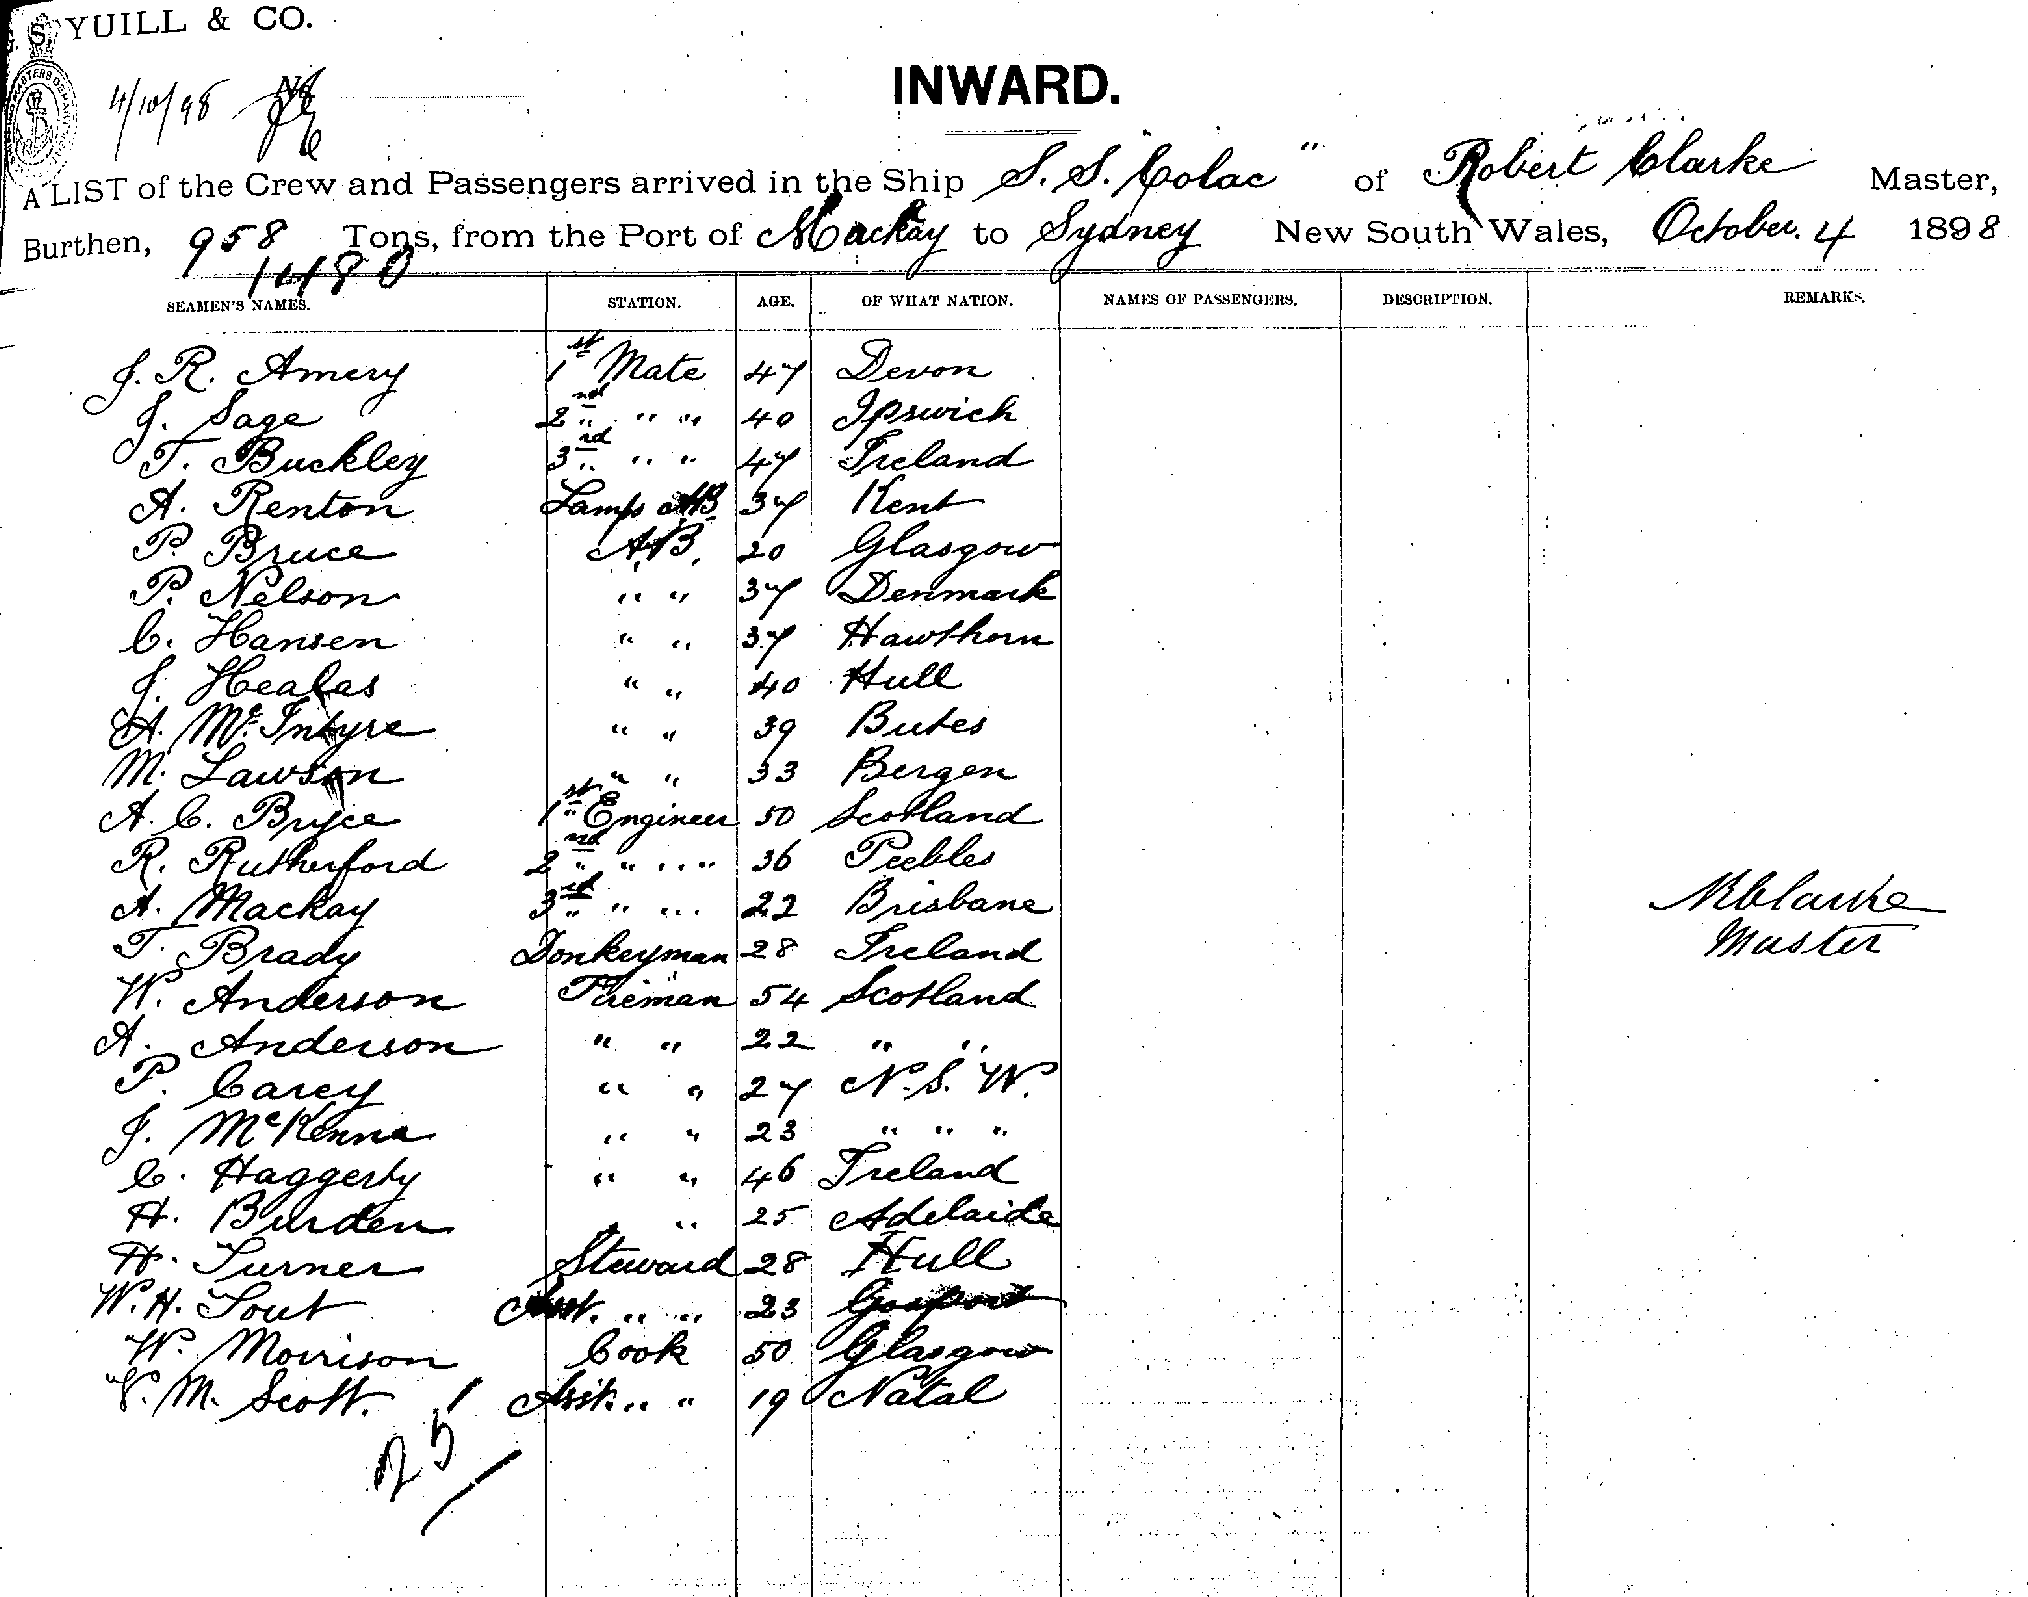 S. YUILL & CO.
4/10/98
INWARD.
A LIST of the Crew and Passengers arrived in the Ship S. S. "Colac" of Robert Clarke Master,
Burthen, 958 Tons, from the Port of Mackay to Sydney New South Wales, October. 4 1898
1480
SEAMEN'S NAMES. STATION. AGE. OF WHAT NATION. NAMES OF PASSENGERS. DESCRIPTION. REMARKS.
J. R. Amery 1st Mate 47 Devon
J. Sage 2nd " " 40 Ipswich
T. Buckley 3rd " " 47 Ireland
A. Renton Lamps AB 37 Kent
P. Bruce A.B. 20 Glasgow
P. Nelson " " 37 Denmark
C. Hansen " " 37 Hawthorn
J. Healas " " 40 Hull
A. McIntyre " " 39 Butes
M. Lawson " " 33 Bergen
A. C. Bryce 1st Engineer 50 Scotland
R. Rutherford 2nd " " 36 Peebles
A. Mackay 3rd " " 22 Brisbane
R Clarke
T. Brady Donkeyman 28 Ireland
Master
W. Anderson Fireman 54 Scotland
A. Anderson " " 22 " "
P. Carey " " 27 N. S. W.
J. McKenna " " 23 " " "
C. Haggerty " " 46 Ireland
H. Burden " " 25 Adelaide
H. Turner Steward 28 Hull
W. H. Tout Asst. " " 23 Gosport
W. Morrison Cook 50 Glasgow
V. M. Scott. Asst. " " 19 Natal
25